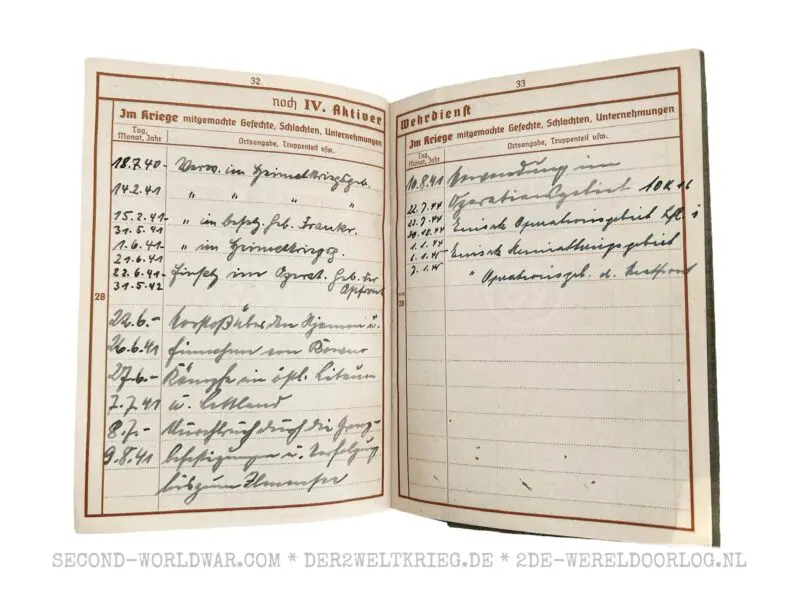 32
noch IV. Aktiver
Im Kriege mitgemachte Gefechte, Schlachten, Unternehmungen
Tag, Monat, Jahr
Ortsangabe, Truppenteil usw.
18.7.40- Verw. im Heimatkriegsgeb.
14.2.41 " " " "
15.2.41- " im besetz. Geb. Frankr.
31.5.41
1.6.41- " im Heimatkriegsg.
21.6.41
22.6.41- Einsatz im Operat. Geb. der
31.5.42 Ostfront
28
22.6.- Vorstoß über den Njemen u.
26.6.41 Einnahme von
27.6.- Kämpfe in östl. Litauen
7.7.41 u. Lettland
8.7.- Durchbruch durch die Grenz-
9.8.41 befestigungen u. Verfolgung
bis zum Ilmensee
33
Wehrdienst
Im Kriege mitgemachte Gefechte, Schlachten, Unternehmungen
Tag, Monat, Jahr
Ortsangabe, Truppenteil usw.
10.8.41 Verwendung im
Operationsgebiet
22.7.44
Einsatz Operationsgebiet
1.1.44
1.1.45 Einsatz
" Operationsgeb. d. Westfront
28
SECOND-WORLDWAR.COM * DER2WELTKRIEG.DE * 2DE-WERELDOORLOG.NL